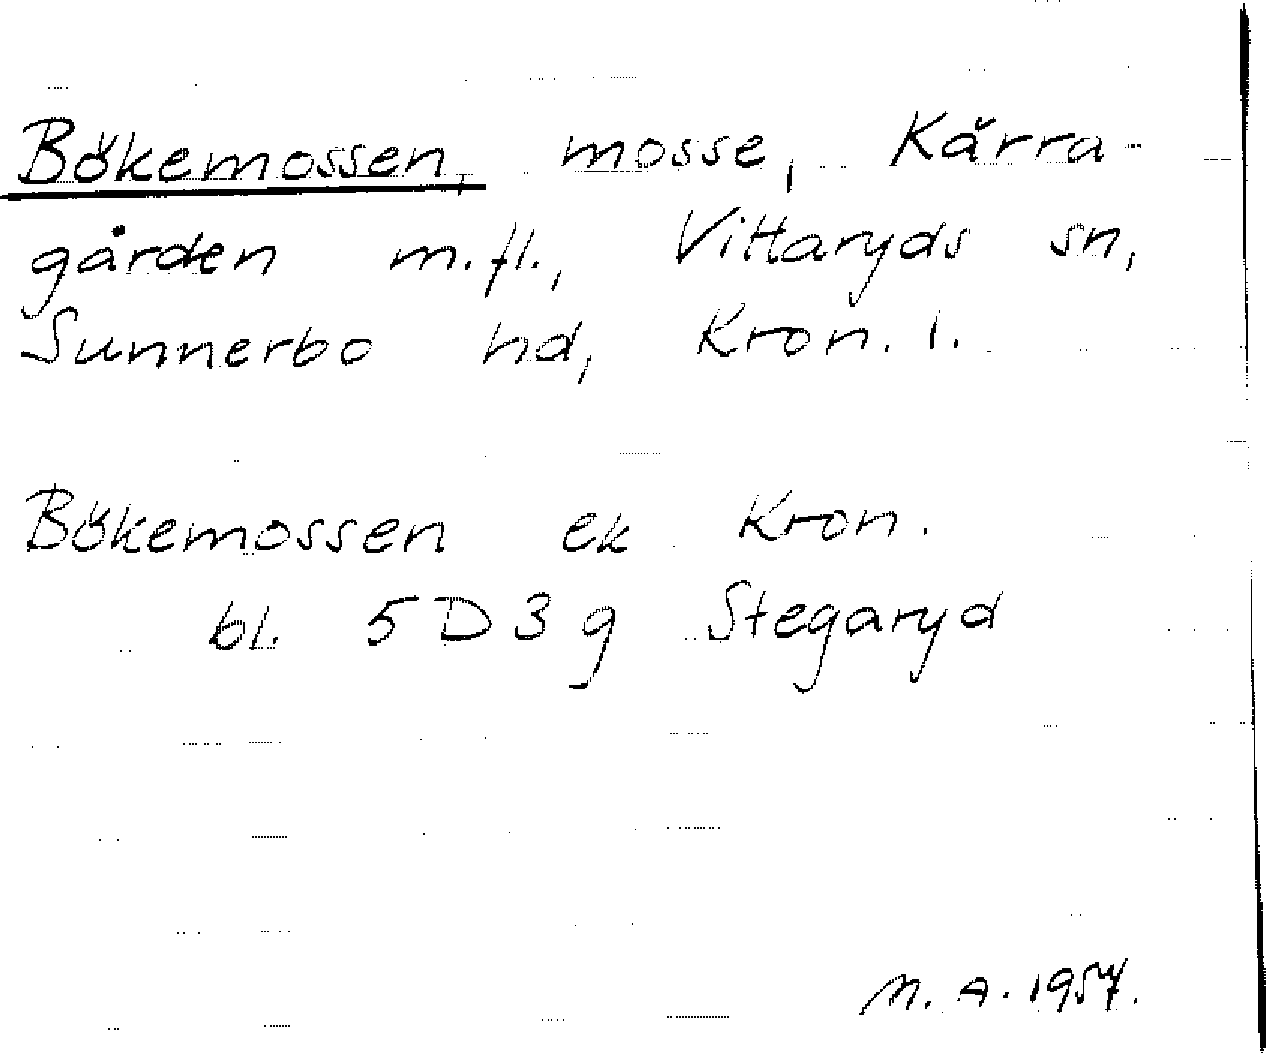 Bökemossen, mosse, Kärra-
gården m.fl., Vittaryds sn,
Sunnerbo hd, Kron. l.
Bökemossen ek Kron.
bl. 5D3g Stegaryd
M. A. 1957.